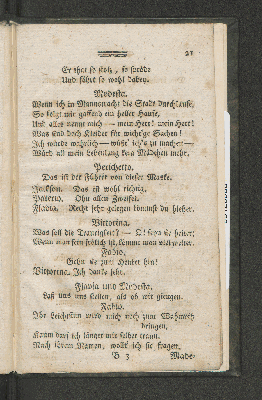 21
Er thut so stolz, so spröde
Und fährt so wohl dabey.
Modesta.
Wenn ich in Mannstracht die Stadt durchlaufe,
So folgt mir gaffend ein heller Haufe,
Und alles nennt mich — mein Herr! mein Herr!
Was sind doch Kleider für wicht'ge Sachen!
Ich würde wahrlich — wüßt' ich's zu machen —
Würd all mein Lebenlang kein Mädchen mehr.
Perichetto.
Das ist der Führer von dieser Maske.
Jackson. Das ist wohl richtig.
Palerno. Ohn allen Zweifel.
Flavia. Recht sehr gelegen kömmst du hieher.
Vittorina.
Was soll die Traurigkeit? — O! seyn Sie heiter;
Wenn man sein fröhlich ist, kömmt man viel weiter.
Fabio.
Gehn Sie zum Henker hin!
Vittorina. Ich danke sehr.
Flavia und Modesta.
Laß uns uns stellen, als ob wir giengen.
Fabio.
Ihr Leichtsinn wird mich noch zum Wahnwitz
bringen,
Kaum darf ich länger mir selber traun.
Nach ihrem Namen, wollt' ich sie fragen,
B 3
Made-